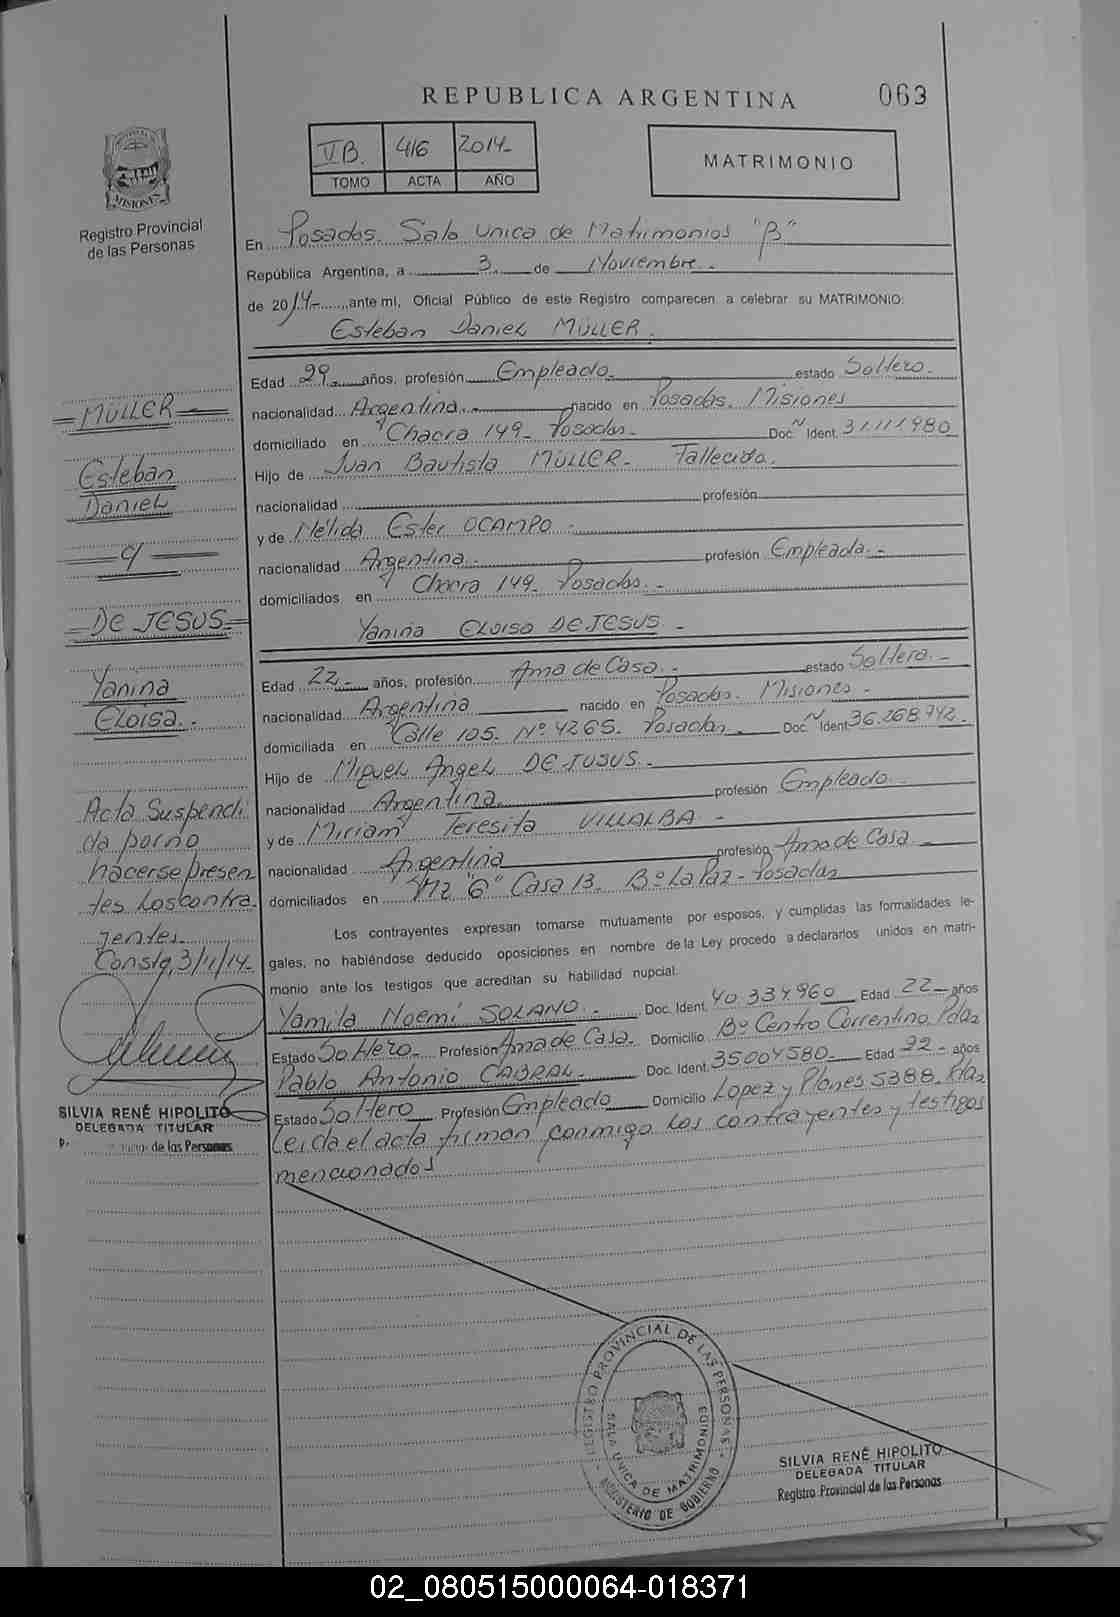 REPUBLICA ARGENTINA 063
VB. 416 2014-
TOMO ACTA AÑO
MATRIMONIO
MISIONES
Registro Provincial
de las Personas
En Posadas. Sala Unica de Matrimonios "B"
República Argentina, a 3. de Noviembre.-
de 2014- ,ante mi, Oficial Público de este Registro comparecen a celebrar su MATRIMONIO:
Esteban Daniel MÜLLER.
Edad 29.- años, profesión Empleado.- estado Soltero.-
nacionalidad Argentina.- nacido en Posadas. Misiones
domiciliado en Chacra 149- Posadas.- Doc. N Ident. 31.111.980
Hijo de Juan Bautista MÜLLER- Fallecido.
nacionalidad profesión
y de Nélida Ester OCAMPO.-
nacionalidad Argentina.- profesión Empleada.-
domiciliados en Chacra 149- Posadas.-
Yanina ELOISA DE JESUS.-
Edad 22.- años, profesión Ama de Casa.- estado Soltera.-
nacionalidad Argentina nacido en Posadas. Misiones.-
domiciliada en Calle 105. Nº 4265. Posadas.- Doc. N Ident. 36.268.742.-
Hijo de Miguel Angel DE JUSUS.-
nacionalidad Argentina. profesión Empleado.-
y de Miriam Teresita VILLALBA.-
nacionalidad Argentina profesión Ama de Casa.-
domiciliados en Mz "G" Casa 13- Bº La Paz-Posadas
Los contrayentes expresan tomarse mutuamente por esposos, y cumplidas las formalidades le-
gales, no habiéndose deducido oposiciones en nombre de la Ley procedo a declararlos unidos en matri-
monio ante los testigos que acreditan su habilidad nupcial.
Yamila Noemi SOLANO.- Doc. Ident. 40.334.960 Edad 22- años
Estado Soltero.- Profesión Ama de Casa. Domicilio Bº Centro Correntino. Pdas
Pablo Antonio CABRAL.- Doc. Ident. 35004580- Edad 22- años
Estado Soltero Profesión Empleado Domicilio Lopez y Planes 5388. Pdas
Leida el acta firman conmigo los contrayentes y testigos
mencionados
MÜLLER
Esteban
Daniel
c/
DE JESUS
Yanina
ELOISA.-
Acta Suspendi
da por no
hacerse presen
tes los contra.
yentes.
Consta, 3/11/14-
SILVIA RENÉ HIPOLITO
DELEGADA TITULAR
de las Personas
REGISTRO PROVINCIAL DE LAS PERSONAS
SALA UNICA DE MATRIMONIO
MINISTERIO DE GOBIERNO
SILVIA RENÉ HIPOLITO
DELEGADA TITULAR
Registro Provincial de las Personas
02_080515000064-018371